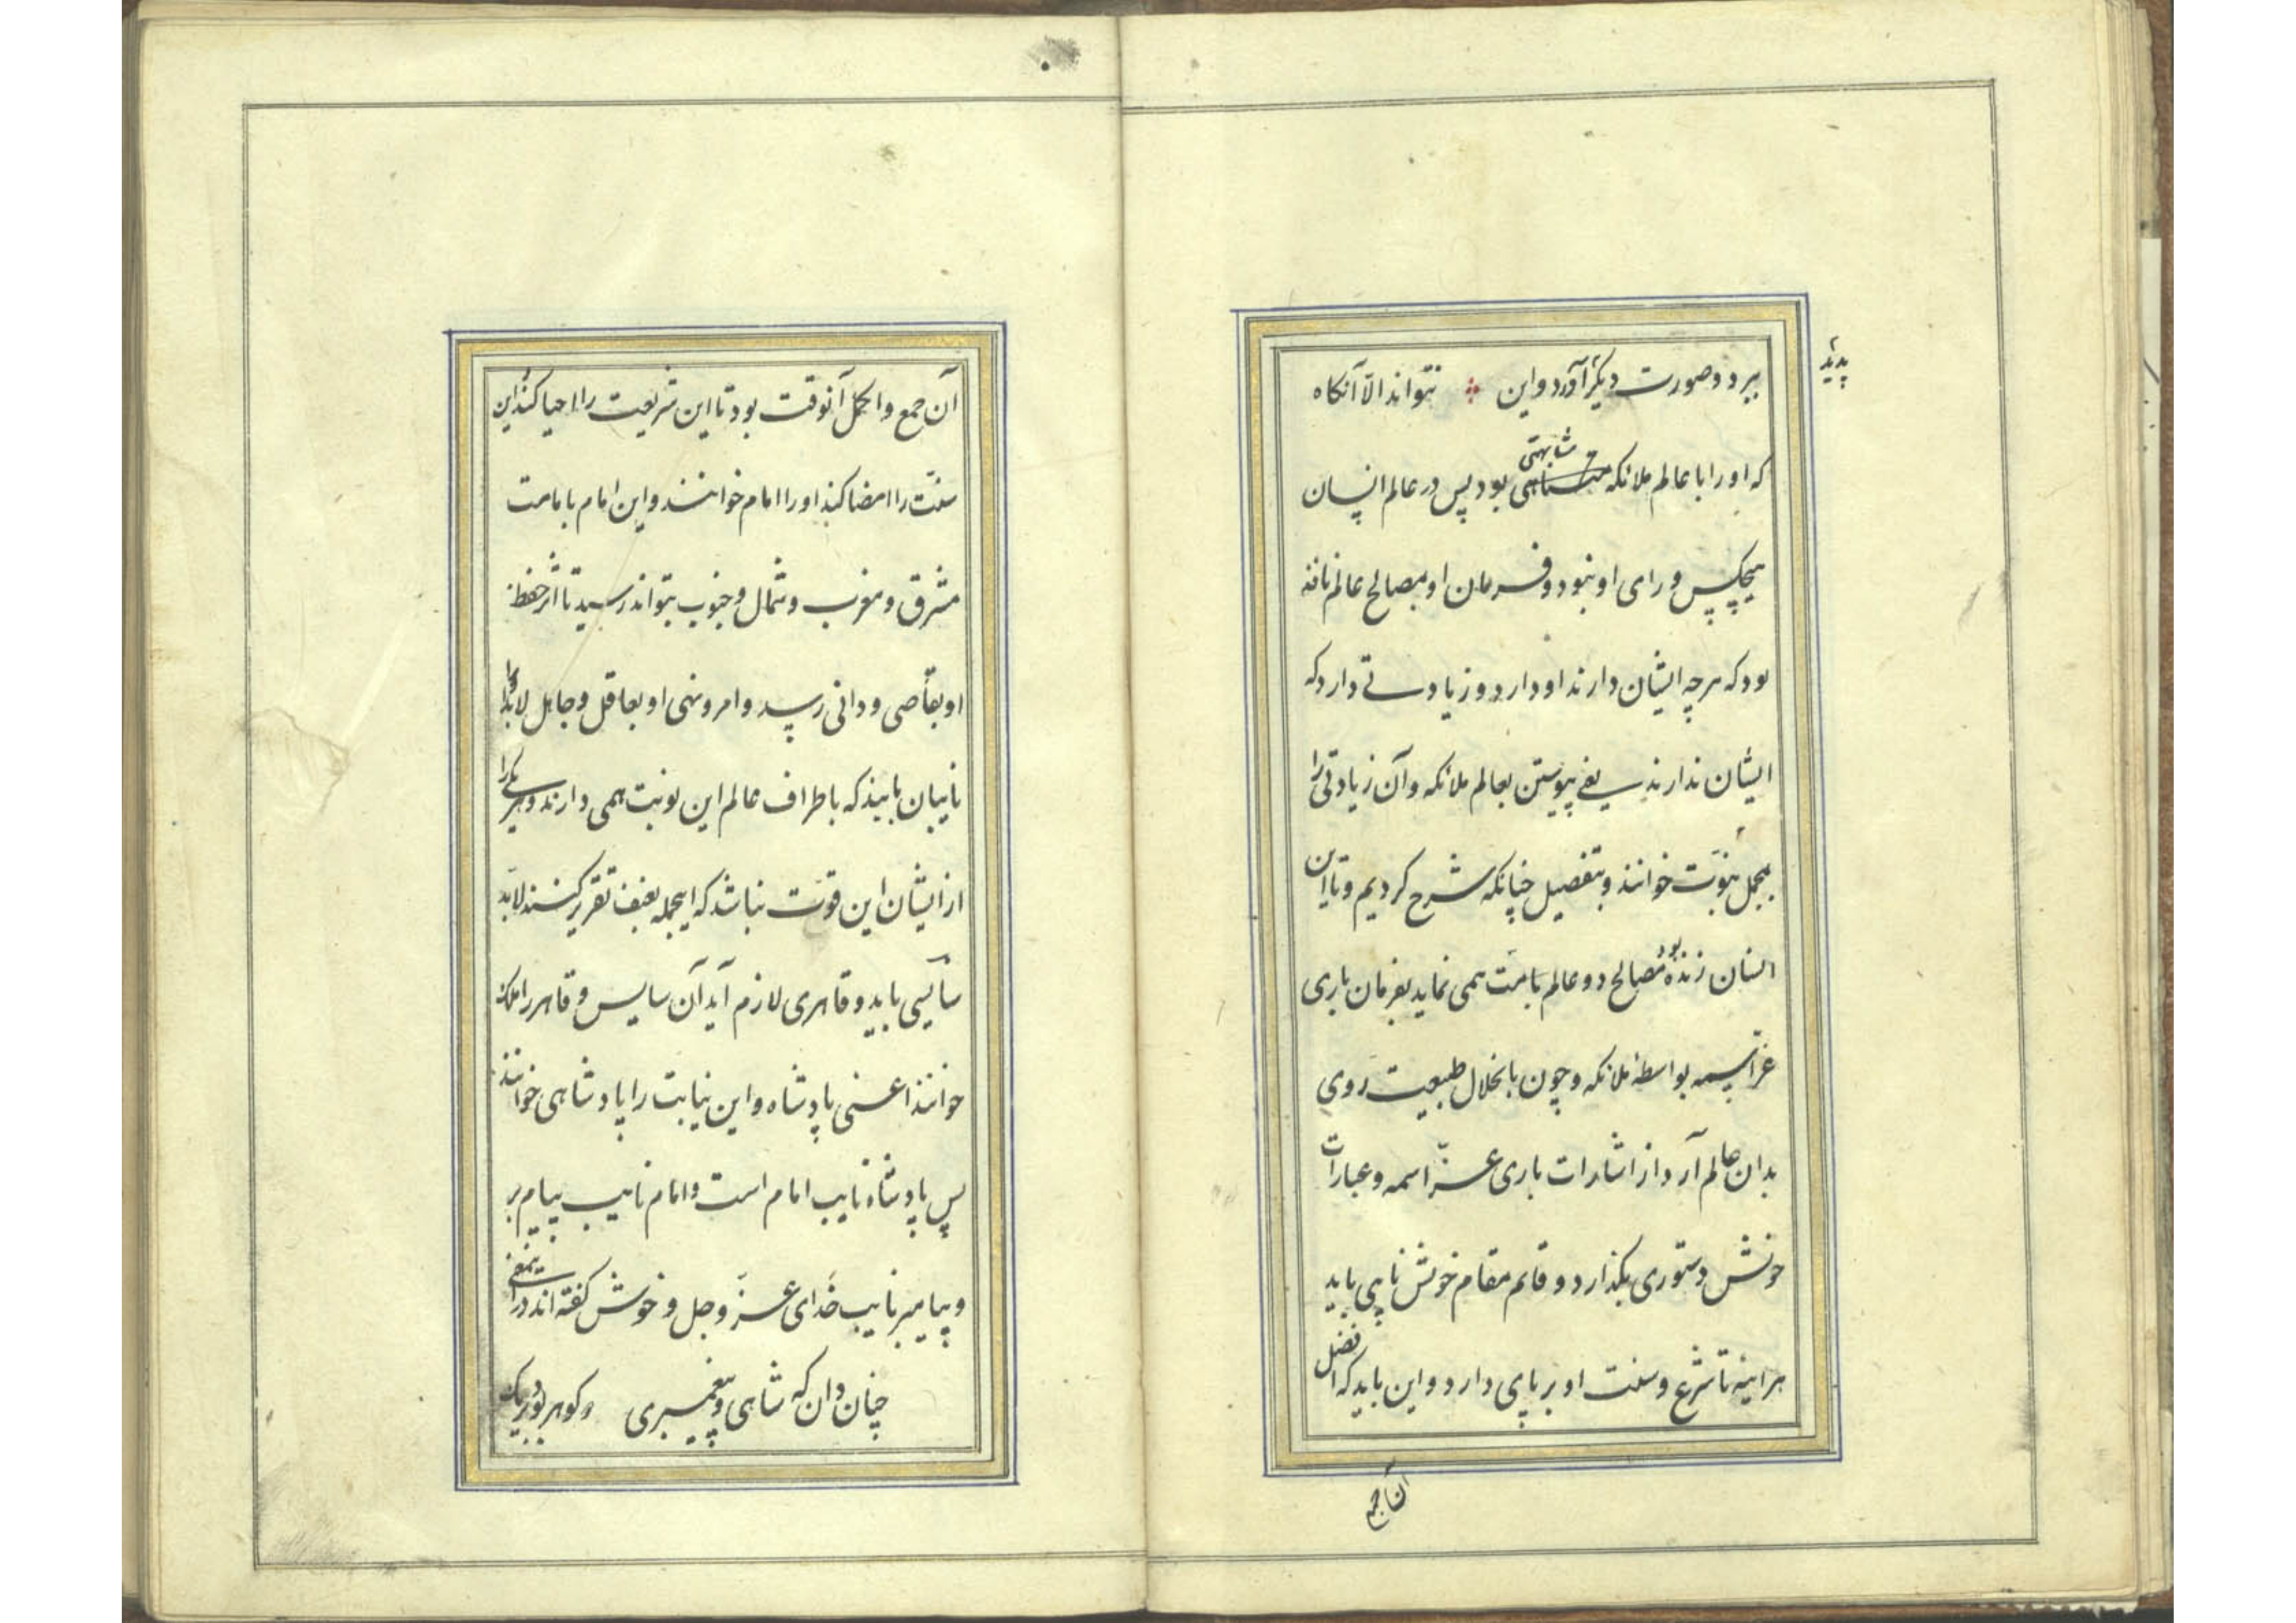 ببرد و صورت دیگر آورد و این نتواند الّا آنکاه
پدید
که او را با عالم ملائکه مشابهتی بود پس در عالم انسان
هیچکس ورای او نبود و فرمان او بمصالح عالم نافذ
بود که هر چه ایشان دارند او دارد و زیادتی دارد که
ایشان ندارند یعنی پیوستن بعالم ملائکه و آن زیادتی را
بمجمل نبوّت خوانند و بتفصیل چنانکه شرح کردیم و تا این
انسان زنده بود مصالح دو عالم بامّت همی نماید بفرمان باری
عزّ اسمه بواسطهٔ ملائکه و چون بانحلال طبیعت روی
بدان عالم آرد از اشارات باری عزّ اسمه و عبارات
خویش دستوری بگذارد و قائم مقام خویش نایبی باید
هراینه تا شرع و سنت او بر پای دارد و این باید که افضل
آن جمع
آن جمع و اکمل آنوقت بود تا این شریعت را احیا کند و این
سنّت را امضا کند او را امام خوانند و این امام بامامت
مشرق و مغرب و شمال و جنوب نتواند رسید تا اثر حفظ
او بقاصی و دانی رسد و امر و نهی او بعاقل و جاهل لابد او را
نایبان بایند که باطراف عالم این نوبت همی دارند و هر یکی را
از ایشان این قوّت نباشد که اینجمله بعنف تقریر کنند لابدّ
سایسی باید و قاهری لازم آید آن سایس و قاهر را ملک
خوانند اعنی پادشاه و این نیابت را پادشاهی خوانند
پس پادشاه نایب امام است و امام نایب پیام بر
و پیامبر نایب خدای عزّ و جل و خوش گفته اند در اینمعنی
چنان دان که شاهی و پیغمبری دو گوهر بود در یک